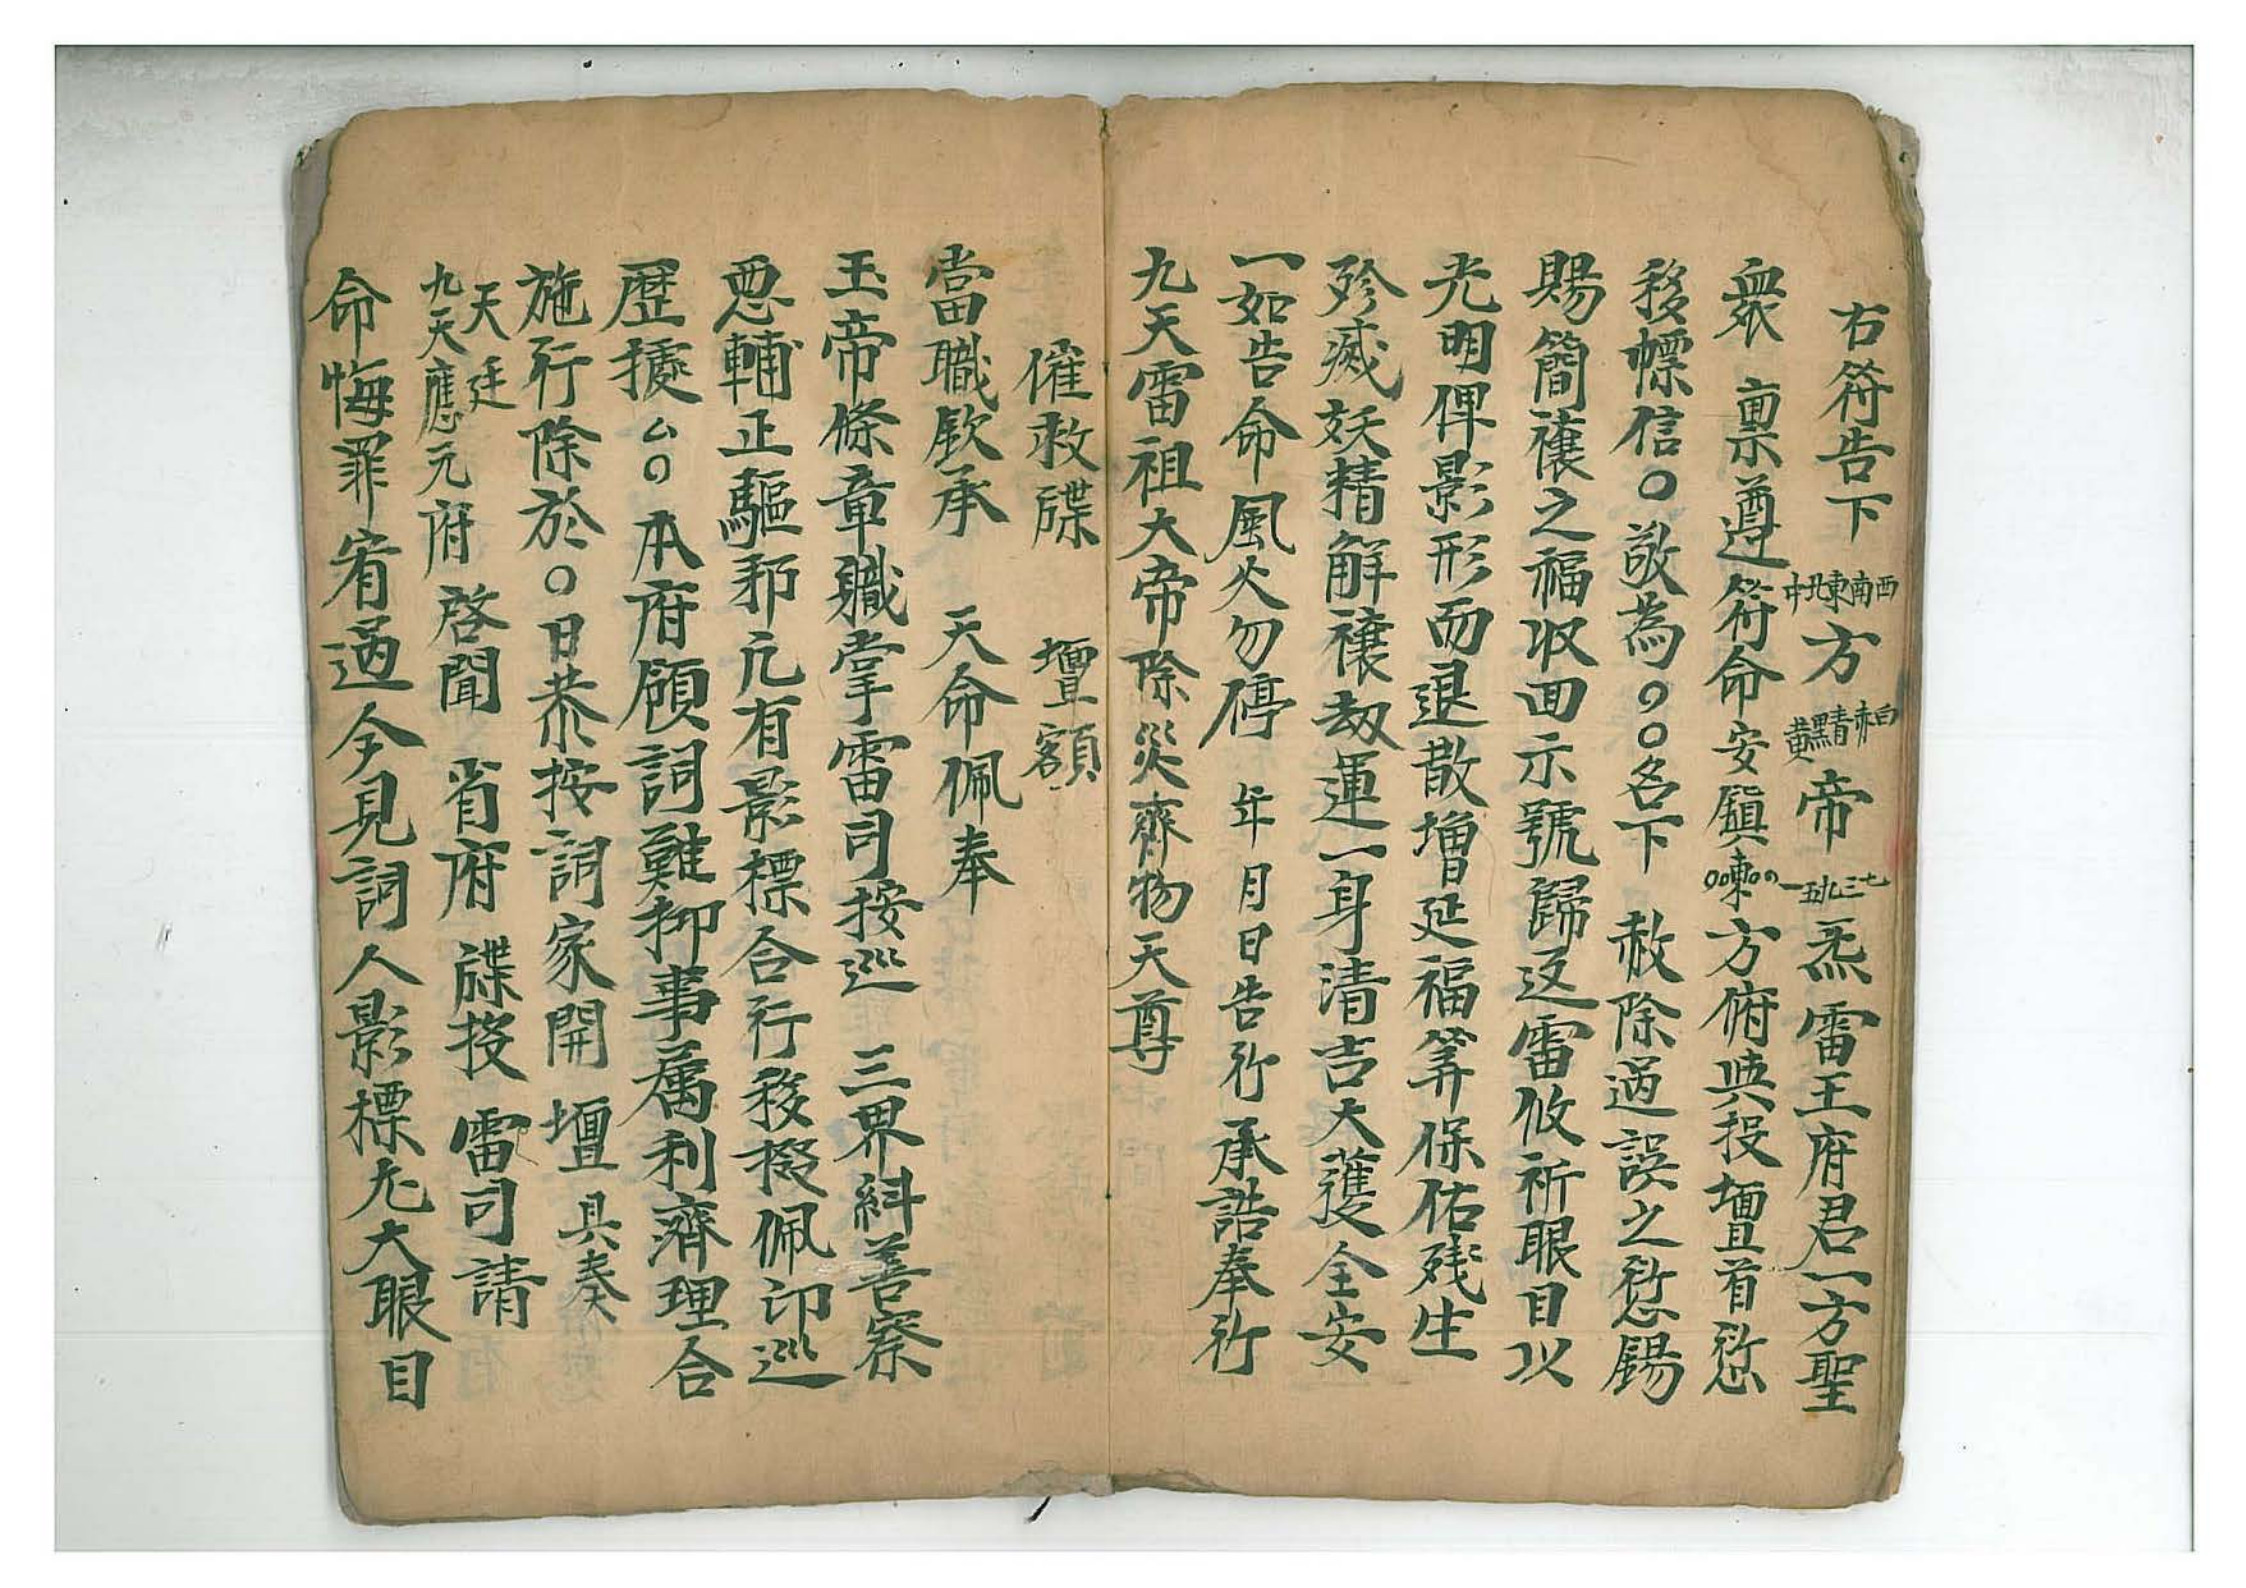 右符告下西南東北中方白赤青黑黃帝七三九五一炁雷王府君一方聖
衆 稟遵符命安鎮〇〇東〇〇方俯與投壇首愆
移幖信〇敬為〇〇〇名下 赦除過誤之愆錫
賜簡禳之福收回示號歸返雷攸祈眼目以
光明俾影形而退散增延福筭保佑残生
殄滅妖精解禳劫運一身清吉大獲全安
一如告命風火勿停 年月日告行 承誥奉行
九天雷祖大帝除災齊物天尊
催救牒 壇額
當職欽承 天命佩奉
玉帝條章職掌雷司按巡 三界糾善察
惡輔正驅邪凢有影標合行移撥佩印巡
歷據厶〇本府領詞難抑事属利濟理合
施行除於〇日恭按詞家開壇具奏
天廷
九天應元府啓聞 省府牒投 雷司請
命悔罪宥過今見詞人影標尢大眼目